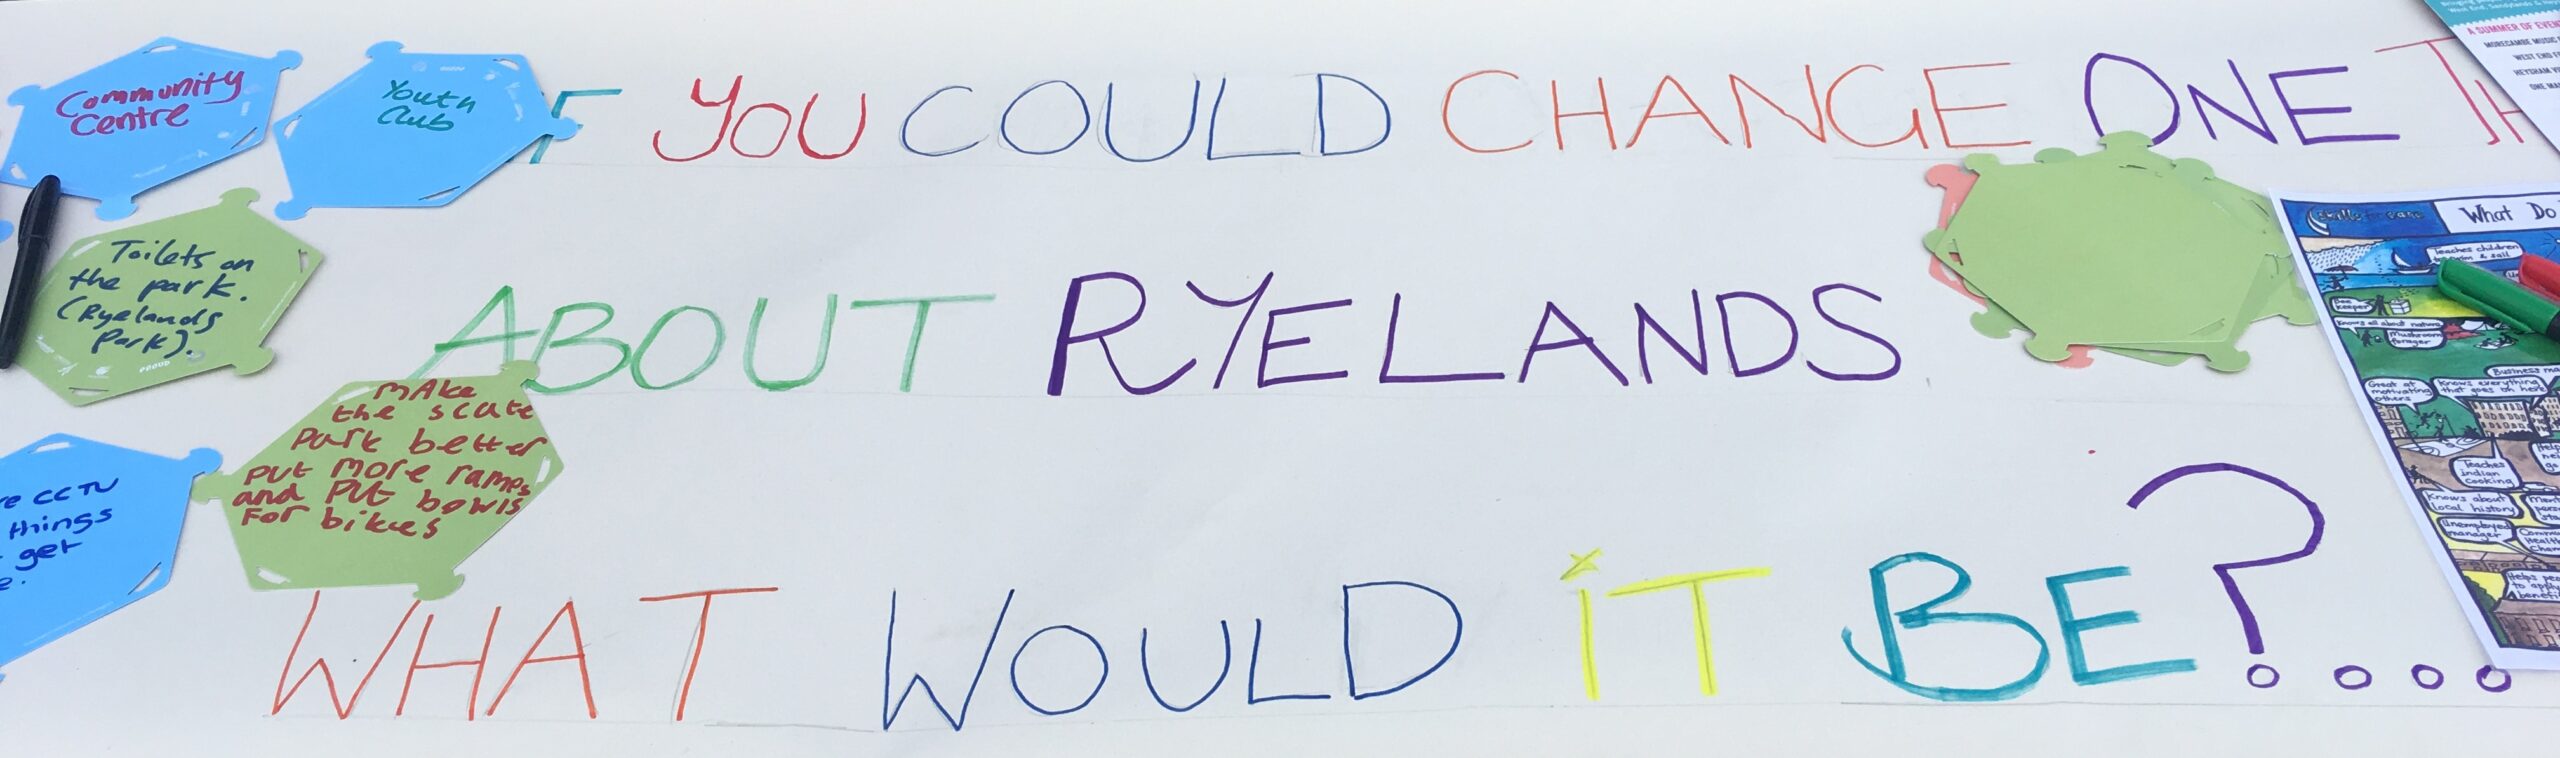 Community
Centre
Youth
Club
F YOU COULD CHANGE ONE TH
Toilets on
the park.
(Ryelands
Park).
ABOUT RYELANDS
MAke
the scate
Park better
PUt more ramps
and PUt bowls
For bikes
CCTV
things
get
WHAT WOULD iT BE?....
West End, Sandylands & Hey
A SUMMER OF EVEN
MORECAMBE MUSIC
WEST END F
HEYSHAM VI
ONE MA
What Do
Teaches children
to swim & sail
Bee
keeper
Knows all about nature
Mushroom
forager
Business ma
Great at
motivating
others
Knows everything
that goes on here
Teaches
indian
cooking
Knows about
local history
Unemployed
manager
Helps peo
to apply
benefit